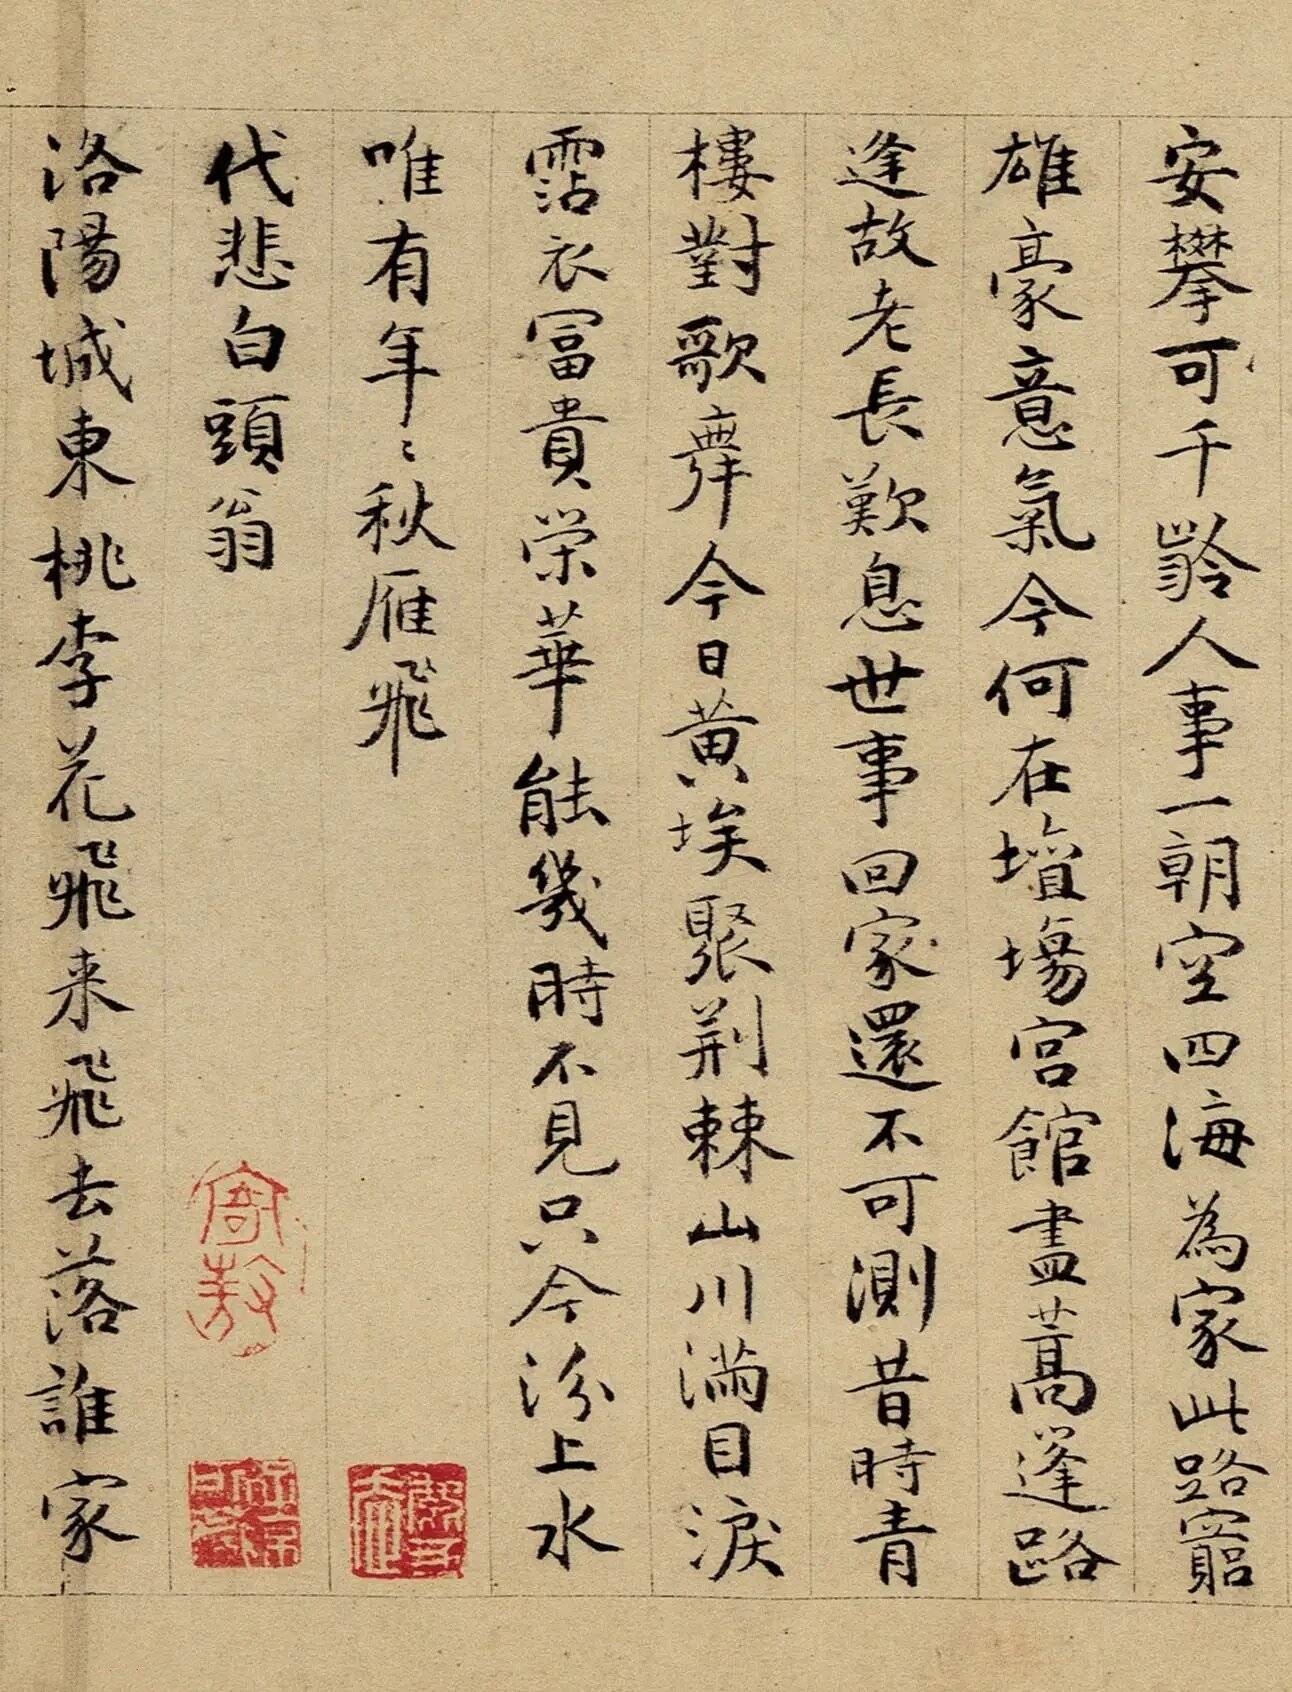 安攀可千齡人事一朝空四海為家此路窮
雄豪意氣今何在壇場宮館盡蒿蓬路
逢故老長歎息世事回家還不可測昔時青
樓對歌舞今日黄埃聚荊棘山川滿目淚
霑衣冨貴榮華能幾時不見只今汾上水
唯有年〻秋雁飛
代悲白頭翁
洛陽城東桃李花飛来飛去落誰家